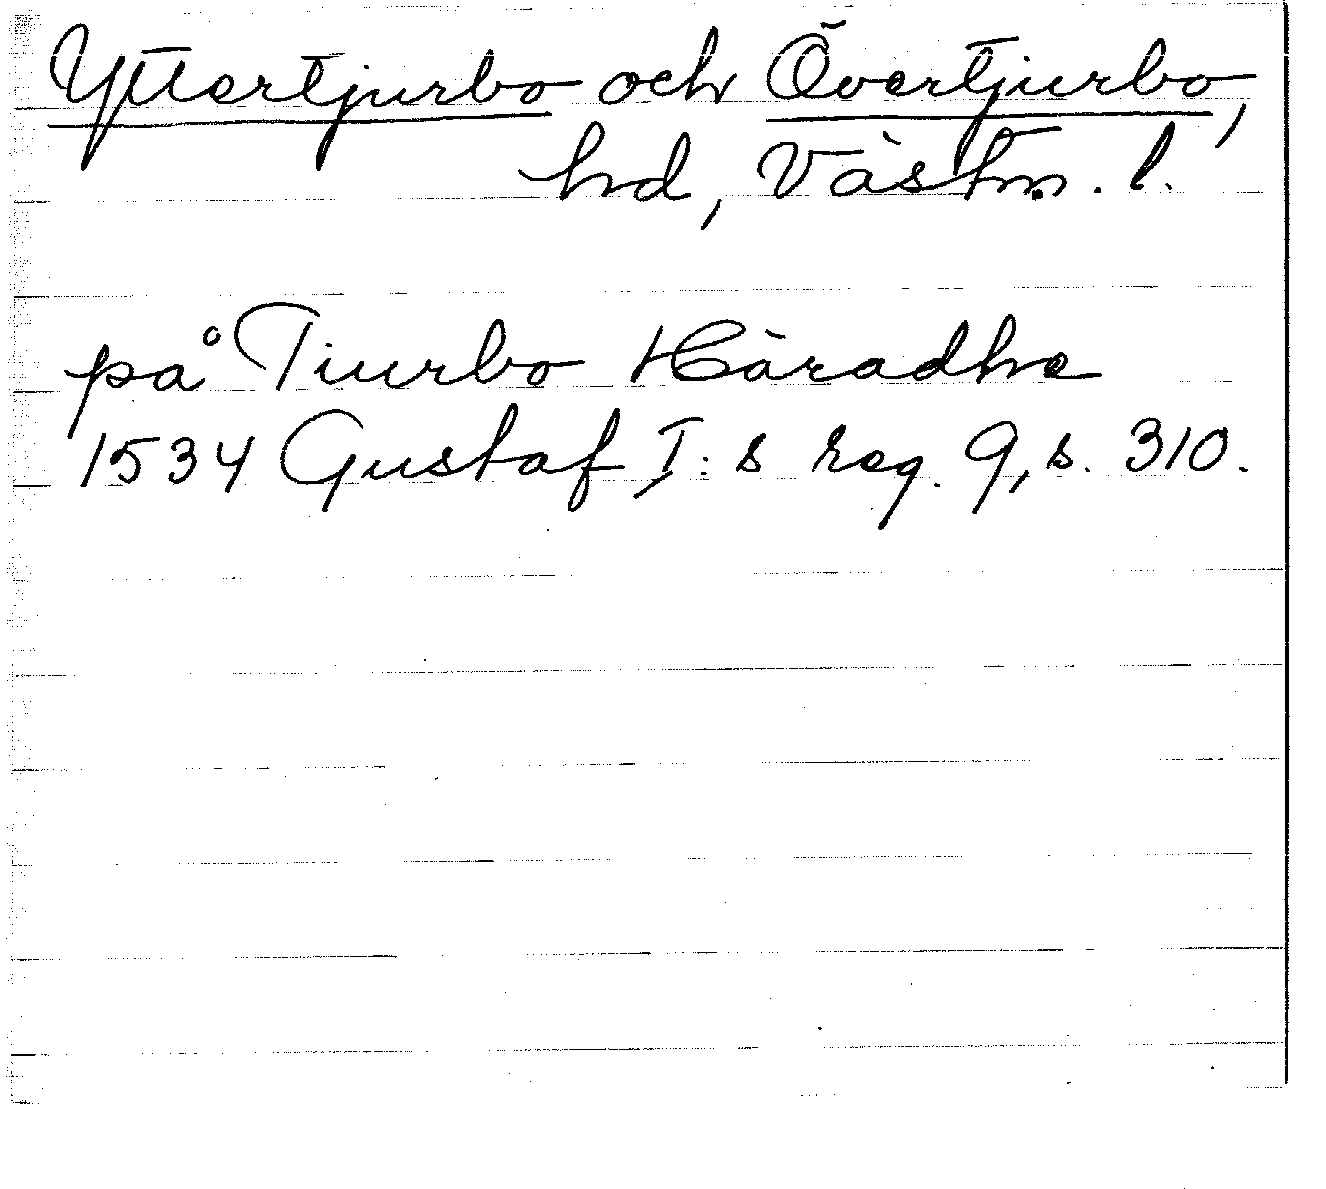 Yttertjurbo och Övertjurbo,
hd, Västm. l.
på Tiurbo Häradhe
1534 Gustaf I:s reg. 9, s. 310.